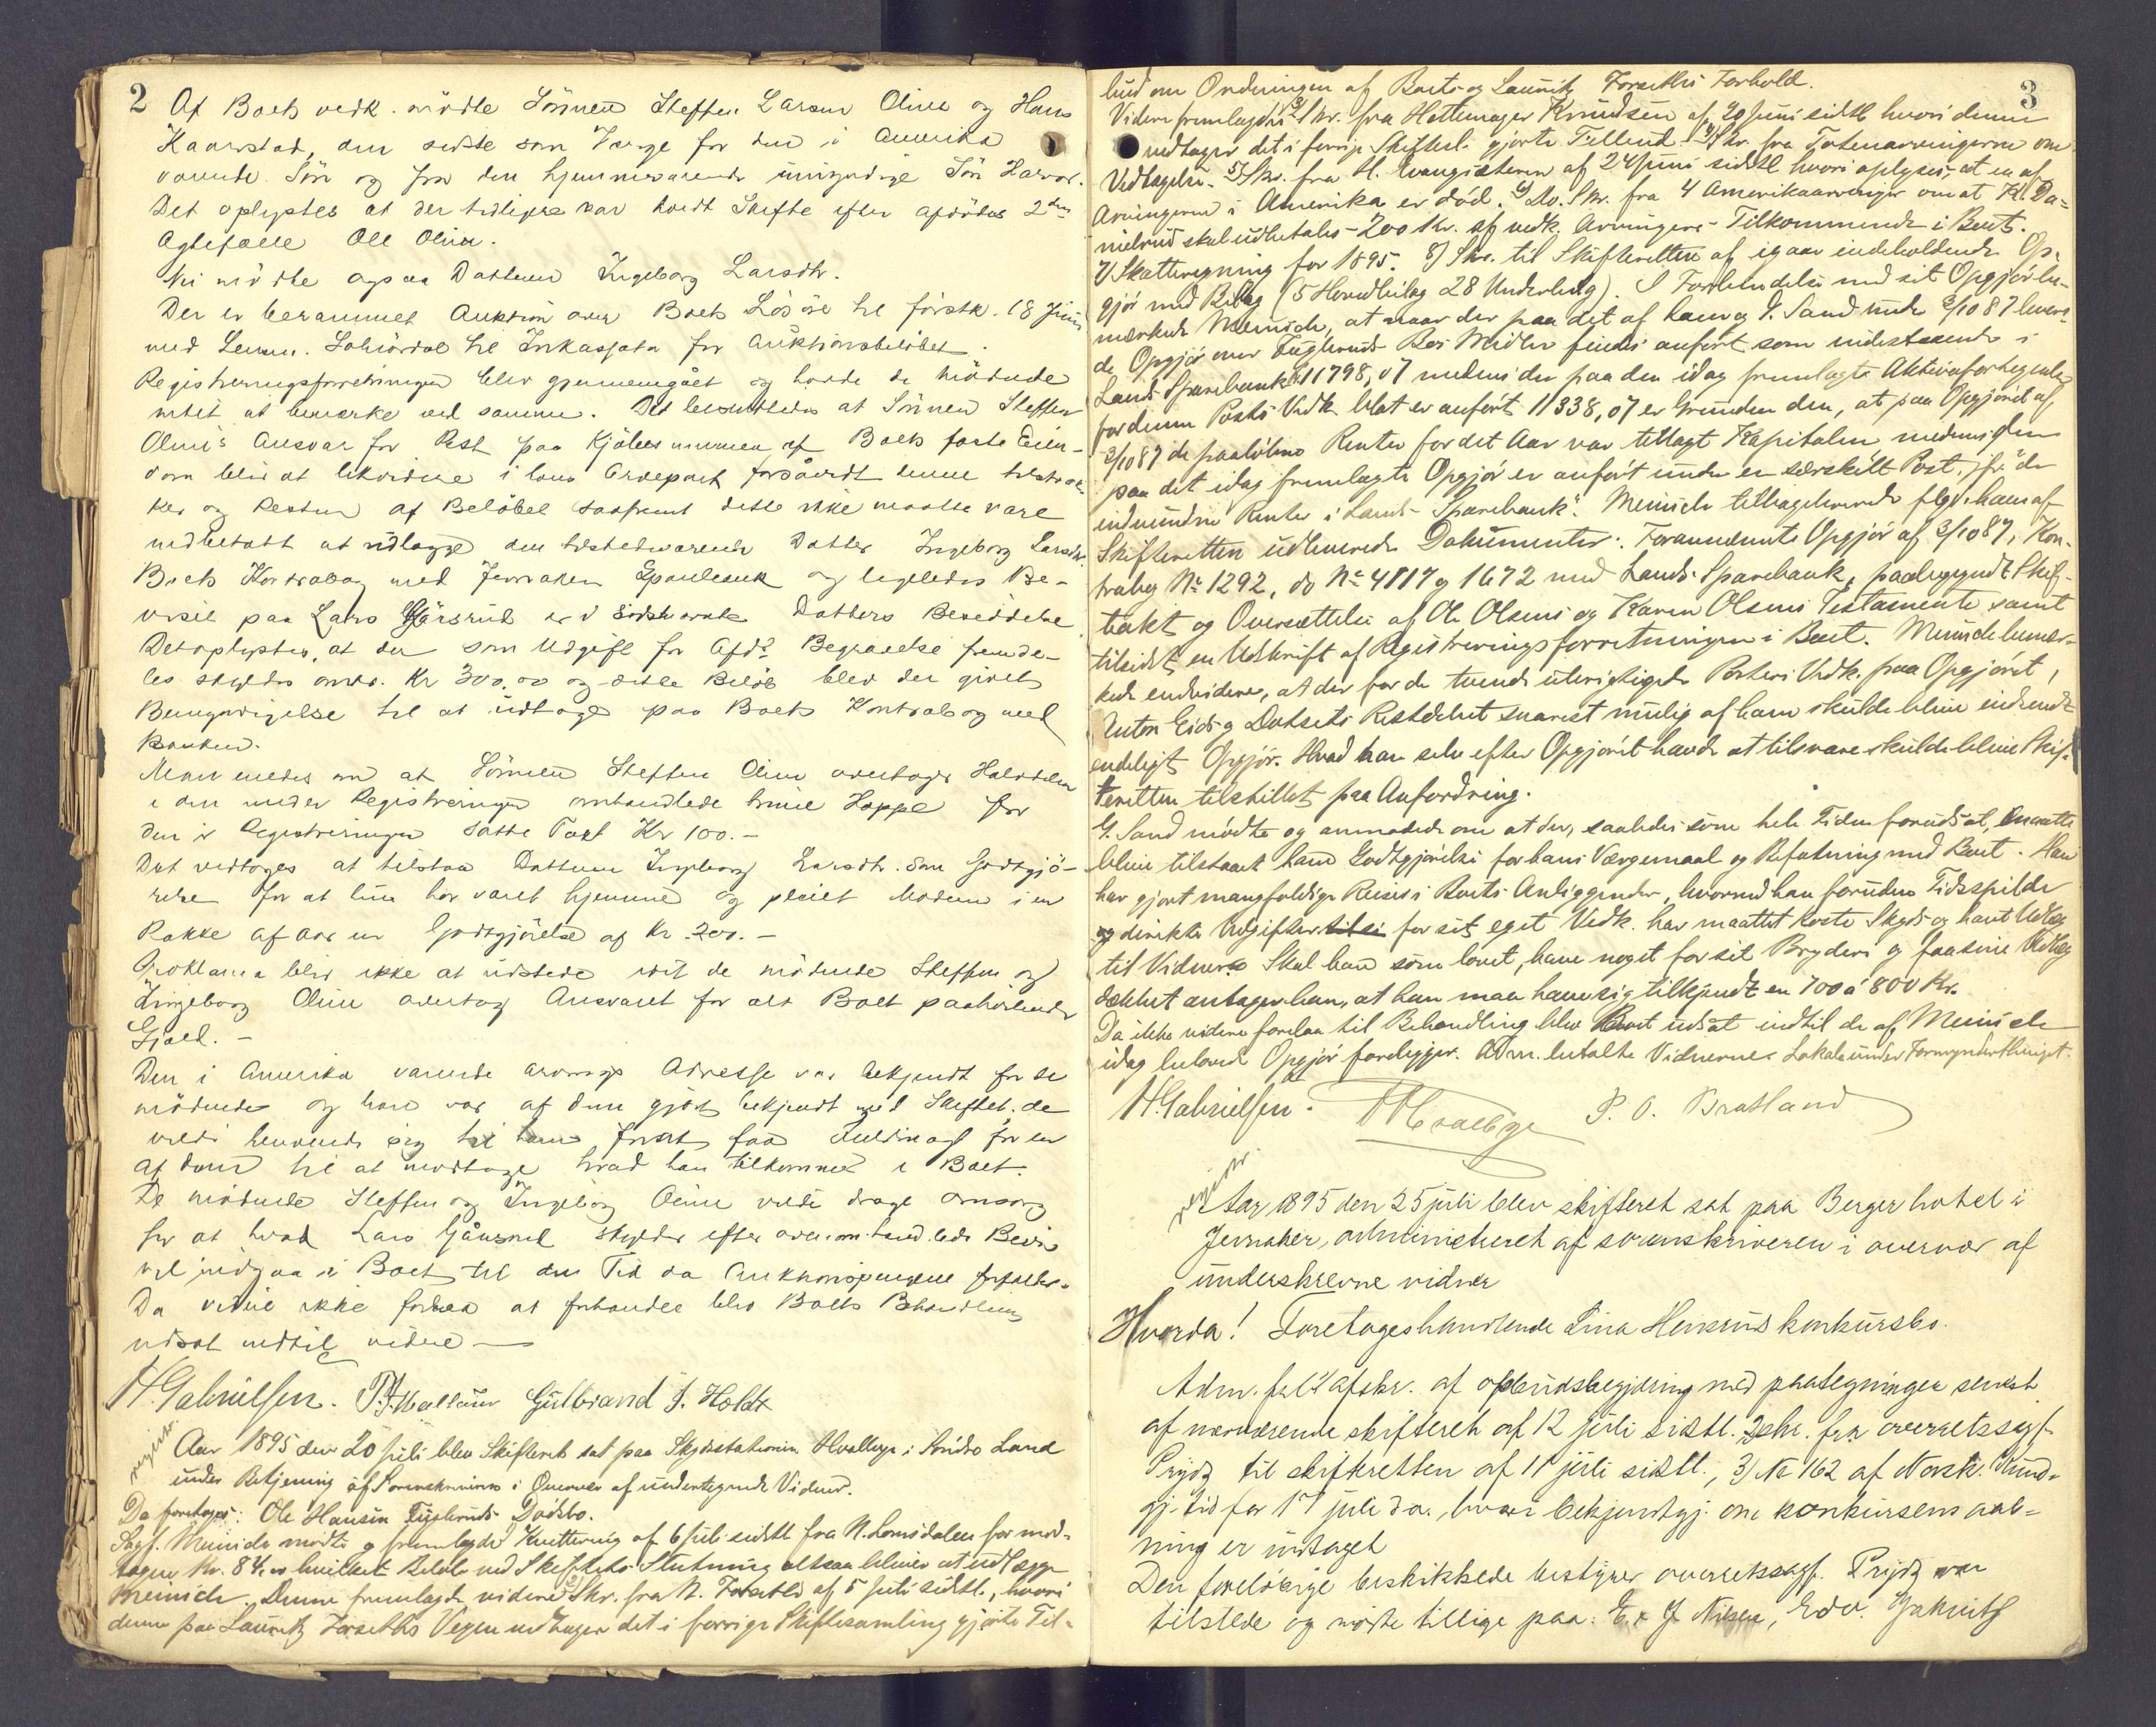 2
Af Boets vedk. mödte Sönnen Steffen Larsen Olien og Hans
Kaarstad, den sidste som Værge for den i Amerika
værende Sön og for den hjemmeværende umyndige Sön Halvor.
Det oplystes at der tidligere var holdt Skifte efter afdödes 2den
Ægtefælle Ole Olien.
Nu mödte ogsaa Datteren Ingeborg Larsdtr.
Der er berammet Auktion over Boets Lösöre til förstk. 18 Juni
med Lensm. Sohlördal til Inkassator for Auktionsbelöbet.
Registreringsforretningen blev gjennemgået og havde de mödende
intet at bemærke ved samme. Det besluttedes at Sönnen Steffen
Olien's Ansvar for Rest paa Kjöbesummen af Boets faste Eien-
dom blir at likvidere i hans Arvepart forsåvidt denne tilstræk-
ker og Resten af Belöbet saafremt dette ikke maatte være
indbetalt at udlægge den tilstedeværende Datter Ingeborg Larsdtr.
Boets Kontrabog med Jevnaker Sparebank og ligeledes Be-
viset paa Lars Gårsrud er i sidstnævnte Datters Besiddelse
Det oplystes, at der som Udgift for Afd's Begravelse fremde-
les skyldes omtr. Kr 300.00 og dette Belöb blev der givet
Bemyndigelse til at udtage paa Boets Kontrabog med
Banken.
Man enedes om at Sönnen Steffen Olien overtager Halvdelen
i den under Registreringen omhandlede brune Hoppe for
den i Registreringen satte Taxt Kr 100.-
Det vedtoges at tilstaa Datteren Ingeborg Larsdtr. som Godtgjö-
relse for at hun har været hjemme og pleiet Moderen i en
Række af Aar en Godtgjörelse af Kr. 200.-
Proklama blir ikke at udstede idet de mödende Steffen og
Ingeborg Olien overtog Ansvaret for alt Boet paahvilende
Gjæld.-
Den i Amerika værende Arvings Adresse var bekjendt for de
mödende og han var af dem gjort bekjendt med Skiftet. de
vilde henvende sig til ham forat faa Fuldmagt for en
af dem til at modtage hvad han tilkommer i Boet.
De mödende Steffen og Ingeborg Olien vilde drage Omsorg
for at hvad Lars Gårsrud skylder efter ovenomhandlede Bevis
vil indgaa i Boet til den Tid da Auktionspengene forfalder.
Da videre ikke forelaa at forhandle blev Boets Behandling
udsat indtil videre —
H. Gabrielsen. Gulbrand J. Holdt
Aar 1895 den 20 Juli blev Skifteret sat paa Skydsstationen Hvalbye i Söndre Land
under Betjening af Sorenskriveren i Overvær af undertegnede Vidner.
Da foretoges: Ole Hansen Fugleruds Dödsbo.
Sagf. Meinich mödte og fremlagde Kvittering af 6 Juli sidstl. fra N. Lomsdalen for mod-
tagne Kr. 84,00 hvilket Belöb ved Skiftets Slutning altsaa bliver at udlægge
Meinich. Denne fremlagde videre Skr. fra N. Forseth af 5 Juli sidstl., hvori
denne paa Lauritz Forseths Vegne vedtager det i forrige Skiftesamling gjorte Til-
3
bud om Ordningen af Boets og Lauritz Forseths Forhold.
Videre fremlagdes Skr. fra Hattemager Knudsen af 20 Juni sidstl. hvori denne
vedtager det i forrige Skifteret gjorte Tilbud. 4) Skr. fra Totenarvingerne om
Vedtagelse. 5) Skr. fra H. Evangisteren af 24 Juni sidstl. hvori oplyses, at en af
Arvingerne i Amerika er död. 6) Do. Skr. fra 4 Amerikaarvinger om at K. Da-
nielrud skal udbetales 200 Kr. af vedk. Arvingers Tilkommende i Boet.
7) Skatteregning for 1895. 8) Skr. til Skifteretten af igaar indeholdende Op-
gjör med Bilag (5 Hovedbilag 28 Underbilag). I Forbindelse med sit Opgjör be-
mærkede Meinich, at naar der paa det af ham og G. Sand under 3/10 87 levere-
de Opgjör over Fugleruds Bos Midler findes anfört som indestaaende i
Lands Sparebank 11798,07 medens der paa den idag fremlagte Aktivafortegnelse
for denne Posts Vedk. blot er anfört 11338,07 er Grunden den, at paa Opgjöret af
3/10 87 de paalöbne Renter for det Aar var tillagt Kapitalen medens den
paa det idag fremlagte Opgjör er anfört under en særskilt Post, jfr. "de
indvundne Renter i Lands Sparebank". Meinich tilbageleverede flg. ham af
Skifteretten udleverede Dokumenter: Forannævnte Opgjör af 3/10 87, Kon-
trabog No 1292, do No 4817 og 1672 med Lands Sparebank, paabegyndt Skif-
teakt og Oversættelse af Ole Olsens og Karen Olsens Testamente samt
tilsidst en Udskrift af Registreringsforretningen i Boet. Meinich bemær-
kede endvidere, at der for de tvende uberigtigede Posters Vedk. paa Opgjöret,
Anton Eids og Dotsets Restdebet snarest mulig af ham skulde blive indsendt
endeligt Opgjör. Hvad han selv efter Opgjöret havde at tilsvare skulde blive Skif-
teretten tilstillet paa Anfordring.
G. Sand mödte og anmodede om at der, saaledes som hele Tiden forudsat, maatte
blive tilstaaet ham Godtgjörelse for hans Værgemaal og Befatning med Boet. Han
har gjort mangfoldige Reiser i Boets Anliggender, hvorved han foruden Tidsspilde
og direkte Udgifter for sit eget Vedk. har maattet koste Skyds og havt Udlæg
til Vidner. Skal han som lovet, have noget for sit Bryderi og faa sine Udlæg
dækket antager han, at han maa have sig tilkjendt en 700 á 800 Kr.
Da ikke videre forelaa til Behandling blev Boet udsat indtil de af Meinich
idag lovede Opgjör foreligger. Adm. betalte Vidnerne. Lokale under Formynderthinget.
H. Gabrielsen. P. O. Bratland
Aar 1895 den 25 juli blev skifteret sat paa Berger hotel i
Jevnaker, administreret af sorenskriveren i overvær af
underskrevne vidner
Hvorda! Foretoges handlende Lina Hensruds konkursbo.
Adm. freml. afskr. af opbudsbegjæring med paategninger senest
af nærværende skifteret af 12 juli sidstl. 2) skr. fra overretssagf.
Prydz til skifteretten af 11 juli sidstl., 3) No 162 af Norsk. Kund-
gj. tid for 17 juli d.a., hvori bekjendtgj. om konkursens aab-
ning er indtaget
Den foreløbige beskikkede bestyrer overretssagf. Prydz var
tilstede og mødte tillige paa: E. & J. Nilsen, Edv.